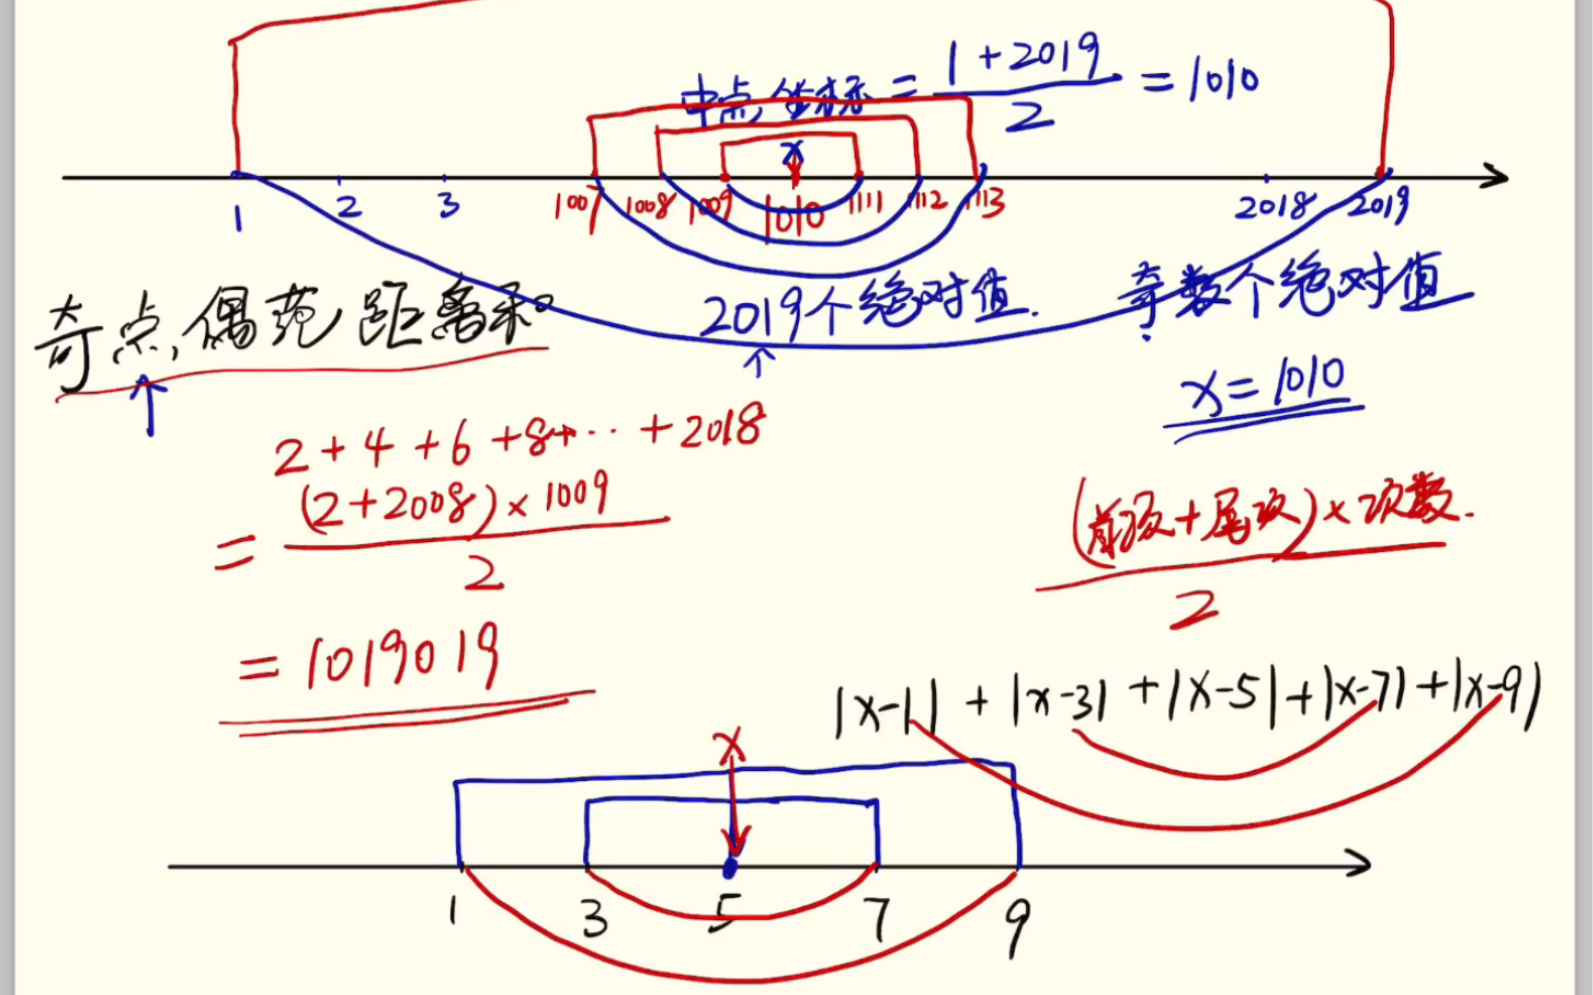 中点坐标 = \frac{1+2019}{2} = 1010
x
1 2 3 1007 1008 1009 1010 1111 1112 1113 2018 2019
奇点,偶范,距离和。 2019个绝对值. 奇数个绝对值
x=1010
2+4+6+8+···+2018
= \frac{(2+2008)×1009}{2}
\frac{(首项+尾项)×项数.}{2}
=1019019
|x-1| + |x-3| + |x-5| + |x-7| + |x-9|
x
1 3 5 7 9